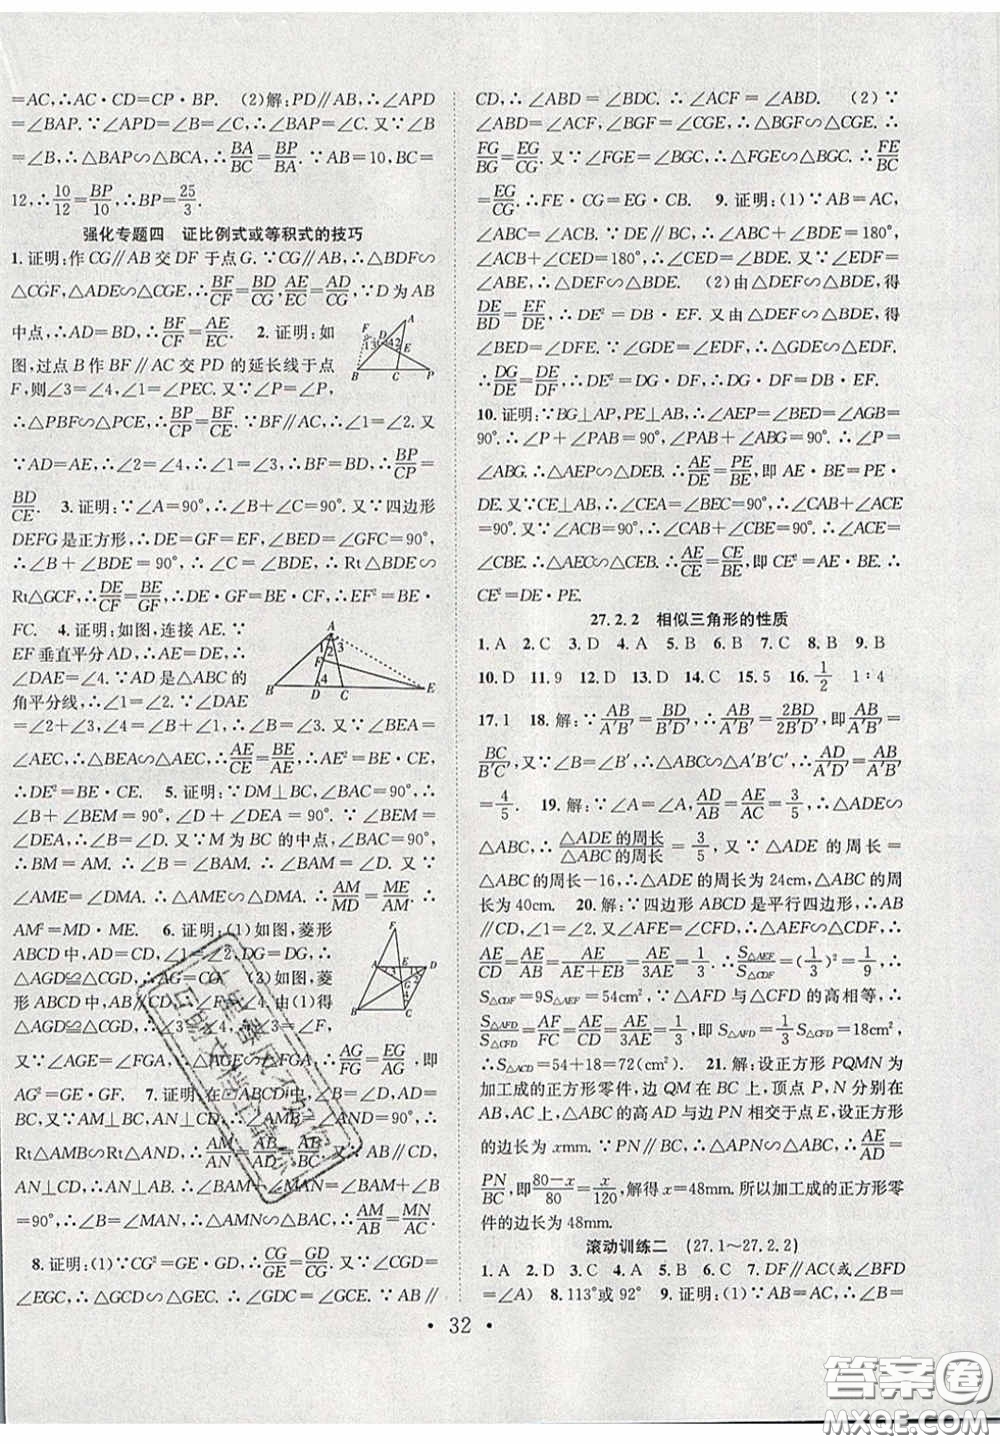 =AC,∴AC·CD=CP·BP. (2)解:PD∥AB,∴∠APD
=∠BAP.∵∠APD=∠B=∠C,∴∠BAP=∠C.又∵∠B
=∠B,∴△BAP∽△BCA,∴BA/BC=BP/BA.∵AB=10,BC=
12,∴10/12=BP/10,∴BP=25/3.
强化专题四 证比例式或等积式的技巧
1.证明:作CG∥AB交DF于点G.∵CG∥AB,∴△BDF∽
△CGF,△ADE∽△CGE,∴BF/CF=BD/CG,AE/EC=AD/CG,∵D为AB
中点,∴AD=BD,∴BF/CF=AE/EC. 2.证明:如
图,过点B作BF∥AC交PD的延长线于点
F,则∠3=∠4,∠1=∠PEC.又∵∠P=∠P,
∴△PBF∽△PCE,∴BP/CP=BF/CE.又
∵AD=AE,∴∠2=∠4,∴∠1=∠3,∴BF=BD,∴BP/CP=
BD/CE. 3.证明:∵∠A=90°,∴∠B+∠C=90°.又∵四边形
DEFG是正方形,∴DE=GF=EF,∠BED=∠GFC=90°,
∴∠B+∠BDE=90°,∴∠C=∠BDE,∴Rt△BDE∽
Rt△GCF,∴DE/CF=BE/GF,∴DE·GF=BE·CF,∴EF²=BE·
FC. 4.证明:如图,连接AE.∵
EF垂直平分AD,∴AE=DE,
∴∠DAE=∠4.∵AD是△ABC的
角平分线,∴∠1=∠2.∵∠DAE
=∠2+∠3,∠4=∠B+∠1,∴∠B=∠3.又∵∠BEA=
∠AEC,∴△BEA∽△AEC,∴AE/CE=BE/AE,∴AE²=BE·CE,
∴DE²=BE·CE. 5.证明:∵DM⊥BC,∠BAC=90°,
∴∠B+∠BEM=90°,∠D+∠DEA=90°.∵∠BEM=
∠DEA,∴∠B=∠D.又∵M为BC的中点,∠BAC=90°,
∴BM=AM.∴∠B=∠BAM.∴∠BAM=∠D.又∵
∠AME=∠DMA.∴△AME∽△DMA.∴AM/MD=ME/AM.∴
AM²=MD·ME. 6.证明:(1)如图,菱形
ABCD中,AD=CD,∠1=∠2,DG=DG,∴
△AGD≌△CGD,∴AG=CG. (2)如图,菱
形ABCD中,AB∥CD,∴∠F=∠4.由(1)得
△AGD≌△CGD,∴∠3=∠4,∴∠3=∠F,
又∵∠AGE=∠FGA,∴△AGE∽△FGA,∴AG/FG=EG/AG,即
AG²=GE·GF. 7.证明:∵在▱ABCD中,∴∠B=∠D,
又∵AM⊥BC,AN⊥CD,∴∠AMB=∠AND=90°,∴
Rt△AMB∽Rt△AND,∴AM/AN=AB/AD=AB/BC.又∵AB∥CD,
AN⊥CD,∴AN⊥AB,∴∠MAN+∠BAM=90°,∠BAM+∠B
=90°,∴∠B=∠MAN,∴△AMN∽△BAC,∴AM/AB=MN/AC.
8.证明:(1)∵CG²=GE·GD,∴CG/GE=GD/CG.又∵∠CGD=
∠EGC,∴△GCD∽△GEC.∴∠GDC=∠GCE.∵AB∥
CD,∴∠ABD=∠BDC.∴∠ACF=∠ABD. (2)∵
∠ABD=∠ACF,∠BGF=∠CGE,∴△BGF∽△CGE.∴
FG/BG=EG/CG.又∵∠FGE=∠BGC,∴△FGE∽△BGC.∴FE/BC
=EG/CG.∴FE·CG=EG·BC. 9.证明:(1)∵AB=AC,
∴∠ABC=∠ACB,∵EF∥BC,∴∠BDE+∠ABC=180°,
∠CED+∠ACB=180°,∴∠BDE=∠CED,又∵∠EDF
=∠ABE,∴△DEF∽△BDE. (2)由△DEF∽△BDE,得
DE/BD=EF/DE,∴DE²=DB·EF.又由△DEF∽△BDE,得
∠GED=∠EFD.∵∠GDE=∠EDF,∴△GDE∽△EDF.
∴DG/DE=DE/DF,∴DE²=DG·DF,∴DG·DF=DB·EF.
10.证明:∵BG⊥AP,PE⊥AB,∴∠AEP=∠BED=∠AGB=
90°.∴∠P+∠PAB=90°,∠PAB+∠ABG=90°.∴∠P=
∠ABG.∴△AEP∽△DEB.∴AE/DE=PE/BE,即AE·BE=PE·
DE.又∵CE⊥AB,∴∠CEA=∠BEC=90°,∴∠CAB+∠ACE
=90°.又∵∠ACB=90°,∴∠CAB+∠CBE=90°.∴∠ACE=
∠CBE.∴△AEC∽△CEB.∴AE/CE=CE/BE,即CE²=AE·BE.∴
CE²=DE·PE.
27.2.2 相似三角形的性质
1.A 2.C 3.D 4.A 5.A 6.B 7.C 8.B 9.B
10.D 11.9 12.D 13.D 14.C 15.5 16.1/2 1:4
17.1 18.解:∵AB/A′B′=BD/B′D′,∴AB/A′B′=2BD/2B′D′,即AB/A′B′=
BC/B′C′,又∵∠B=∠B′,∴△ABC∽△A′B′C′,∴AD/A′D′=AB/A′B′
=4/5. 19.解:∵∠A=∠A,AD/AB=AE/AC=3/5,∴△ADE∽
△ABC,∴△ADE的周长/△ABC的周长=3/5,又∵△ADE的周长=
△ABC的周长-16,∴△ADE的周长为24cm,△ABC的周
长为40cm. 20.解:∵四边形ABCD是平行四边形,∴AB
∥CD,∴∠1=∠2.又∵∠AFE=∠CFD,∴△AEF∽△CDF,∴
AE/CD=AE/AB=AE/AE+EB=AE/3AE=1/3.∴S△AEF/S△CDF=(1/3)²=1/9,∴
S△CDF=9S△AEF=54cm².∵△AFD与△CFD的高相等,∴
S△AFD/S△CFD=AF/FC=AE/CD=AE/3AE=1/3,即S△AFD=1/3S△CFD=18cm²,
∴S△ACD=54+18=72(cm²). 21.解:设正方形PQMN为
加工成的正方形零件,边QM在BC上,顶点P,N分别在
AB,AC上,△ABC的高AD与边PN相交于点E,设正方形
的边长为xmm.∵PN∥BC,∴△APN∽△ABC,∴AE/AD=
PN/BC,即80-x/80=x/120,解得x=48mm.所以加工成的正方形零
件的边长为48mm.
滚动训练二 (27.1~27.2.2)
1.A 2.D 3.D 4.C 5.B 6.C 7.DF∥AC(或∠BFD
=∠A) 8.113°或92° 9.证明:(1)∵AB=AC,∴∠B=
· 32 ·
答案圈
MXQE.COM